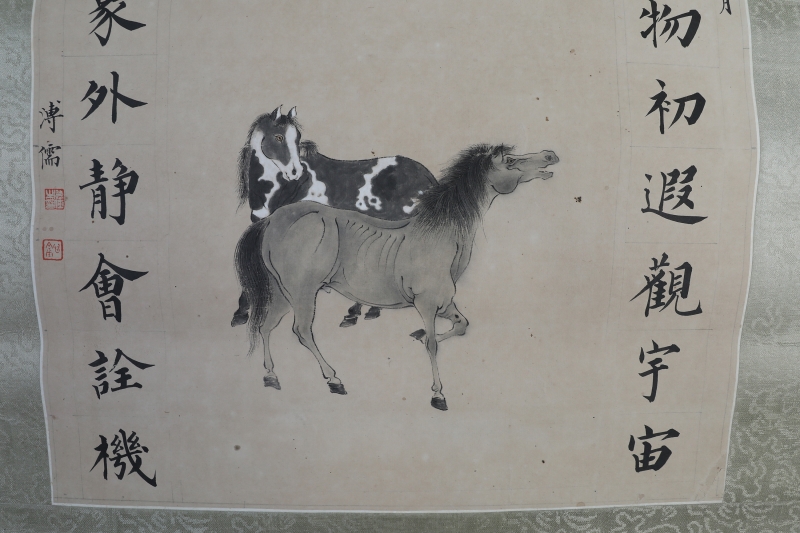 月
物初遐觀宇宙
象外靜會詮機
溥儒